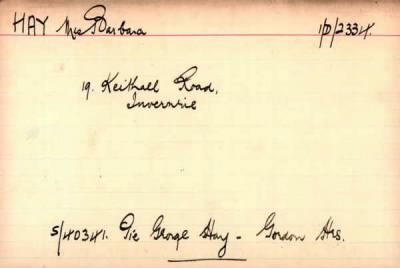 HAY Mrs Barbara 1/D/2334.
19. Keithall Road,
Inverurie
S/40341. Pte George Hay - Gordon Hrs.